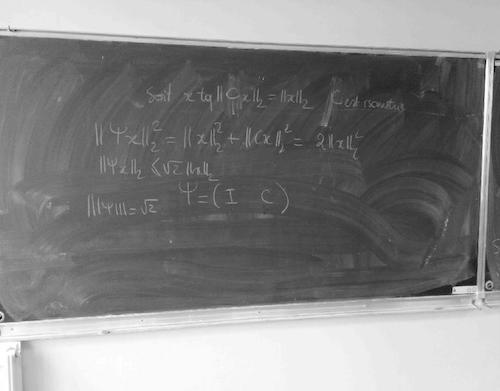 Soit x tq ||Cx||₂ = ||x||₂ C est isométrie
||Ψx||₂² = ||x||₂² + ||Cx||₂² = 2||x||₂²
||Ψx||₂ ≤ √2 ||x||₂
|||Ψ||| = √2 Ψ = (I C)